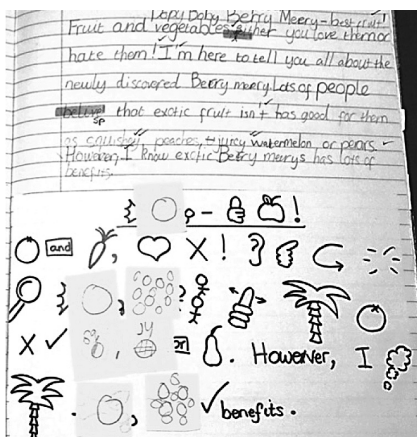 Dopy Doby Berry Meery - best fruit!
Fruit and vegetables either you love them or
hate them! I'm here to tell you all about the
newly discovered Berry meery. Lots of people
that exctic fruit isn't has good for them
as squishy peaches, juicy watermelon, or pears
However, I know exctic Berry meerys has lots of
benefits.
!
and , X !
,
X , . However, I
. , benefits.